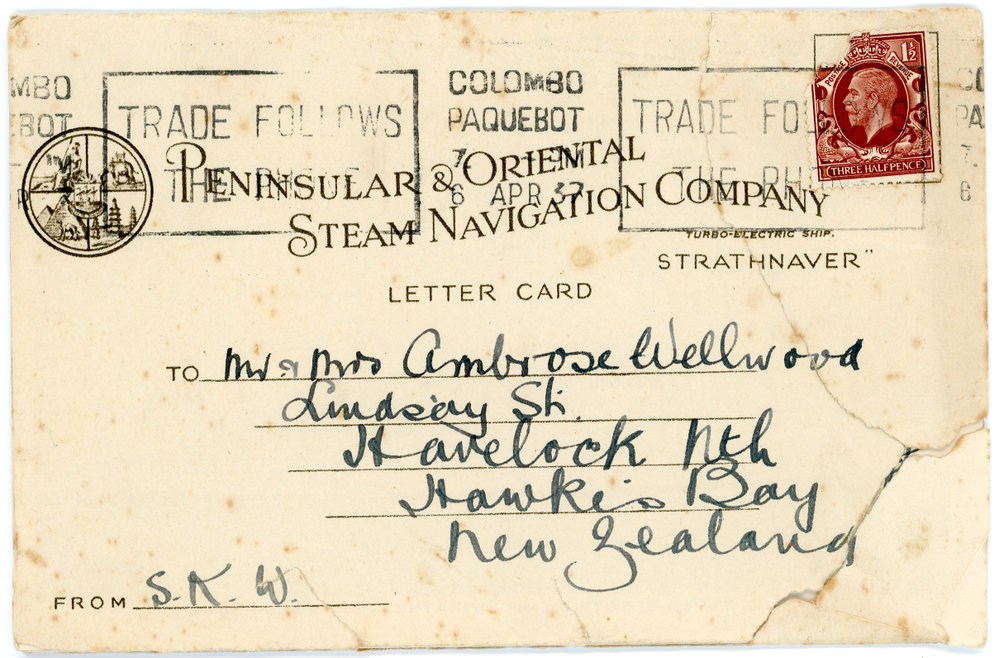 MBO
EBOT
TRADE FOLLOWS
THE PHONE
COLOMBO
PAQUEBOT
6 APR 37
TRADE FOL
THE PH
POSTAGE REVENUE
1½
THREE HALFPENCE
PENINSULAR & ORIENTAL
STEAM NAVIGATION COMPANY
TURBO-ELECTRIC SHIP.
STRATHNAVER"
LETTER CARD
TO Mr & Mrs Ambrose Wellwood
Lindsay St.
Havelock Nth
Hawke's Bay
New Zealand
FROM S.K.W.
CO
PA
7.
6